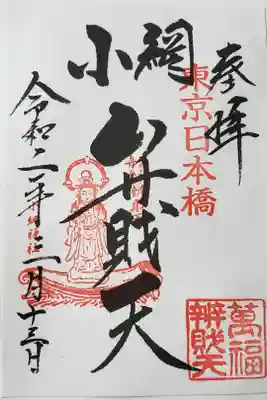 奉拝
東京日本橋
小網
弁財天
令和二年三月十三日
萬福
辨財天